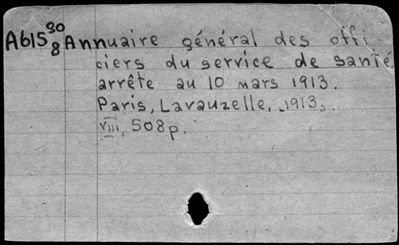 A615 30/8 Annuaire général des offi-
ciers du service de santé
arrête au 10 mars 1913.
Paris, Lavauzelle, 1913.
VIII, 508p.